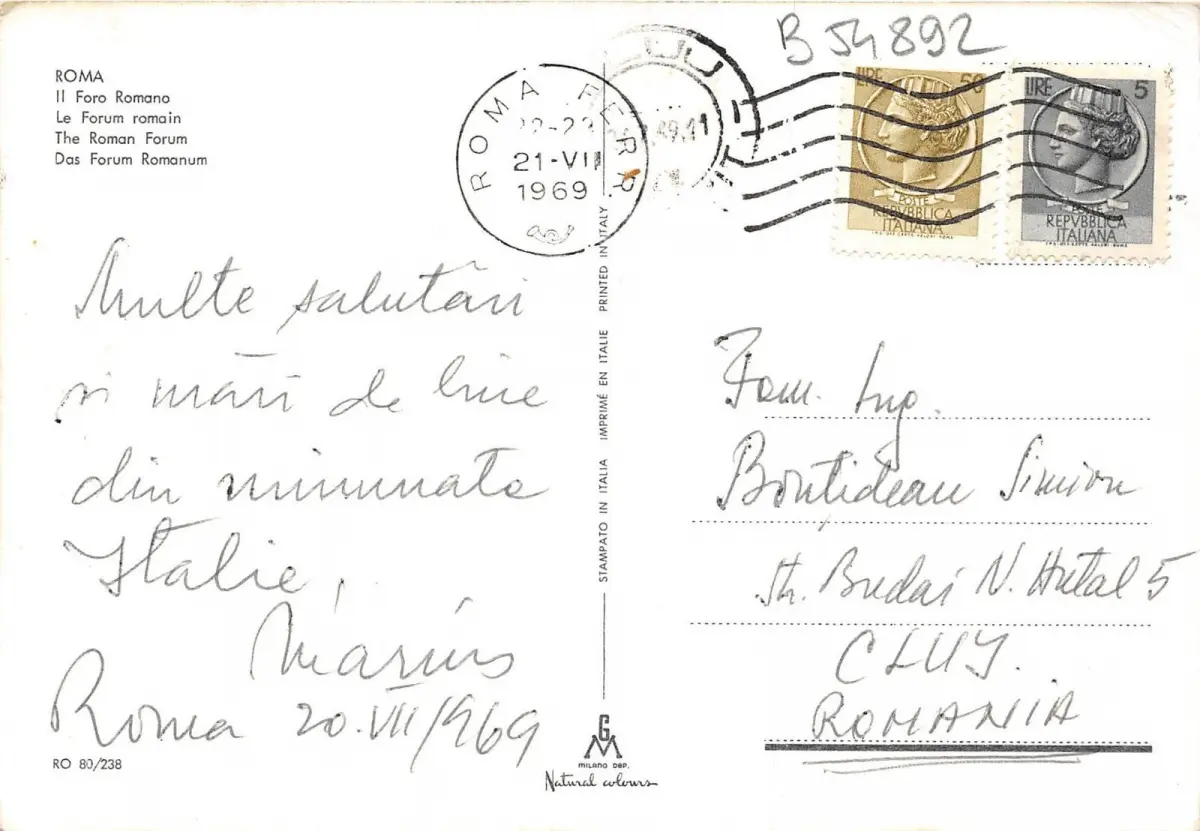 B 54892
ROMA
Il Foro Romano
Le Forum romain
The Roman Forum
Das Forum Romanum
ROMA FERR.
21-VII
1969
LIRE 50
POSTE
REPVBBLICA
ITALIANA
LIRE 5
POSTE
REPVBBLICA
ITALIANA
Multe salutări
și mări de bine
din minunata
Italie,
Marius
Roma 20.VII/969
STAMPATO IN ITALIA IMPRIMÉ EN ITALIE PRINTED IN ITALY
Fam. Ing.
Bonțidean Simion
Str. Budai N. 5
CLUJ.
ROMANIA
RO 80/238
GM
MILANO DEP.
Natural colours